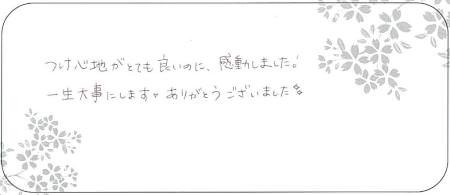 つけ心地がとても良いのに、感動しました!
一生大事にします。ありがとうございました